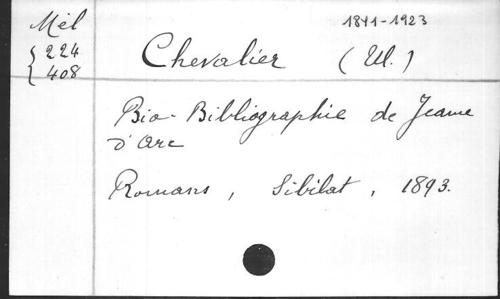 Mél
224
408
1841-1923
Chevalier (Ul.)
Bio-Bibliographie de Jeanne
d'Arc
Romans, Sibilat, 1893.